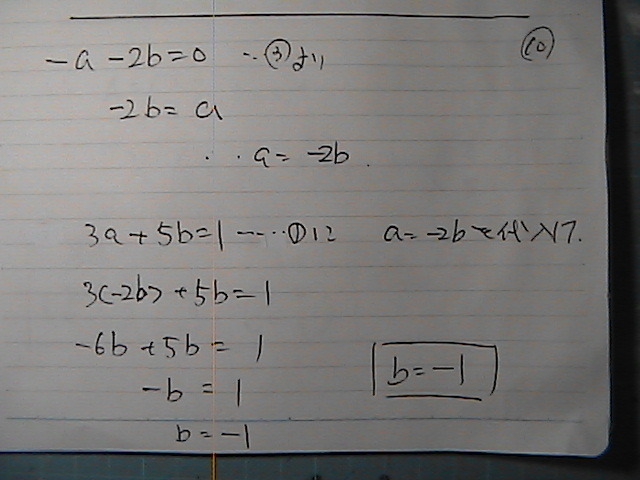 -a -2b=0 …③より
⑩
-2b= a
∴ a= -2b.
3a+5b=1 ……①に a=-2bを代入了.
3(-2b)+5b=1
-6b+5b= 1
-b = 1
b=-1
b=-1